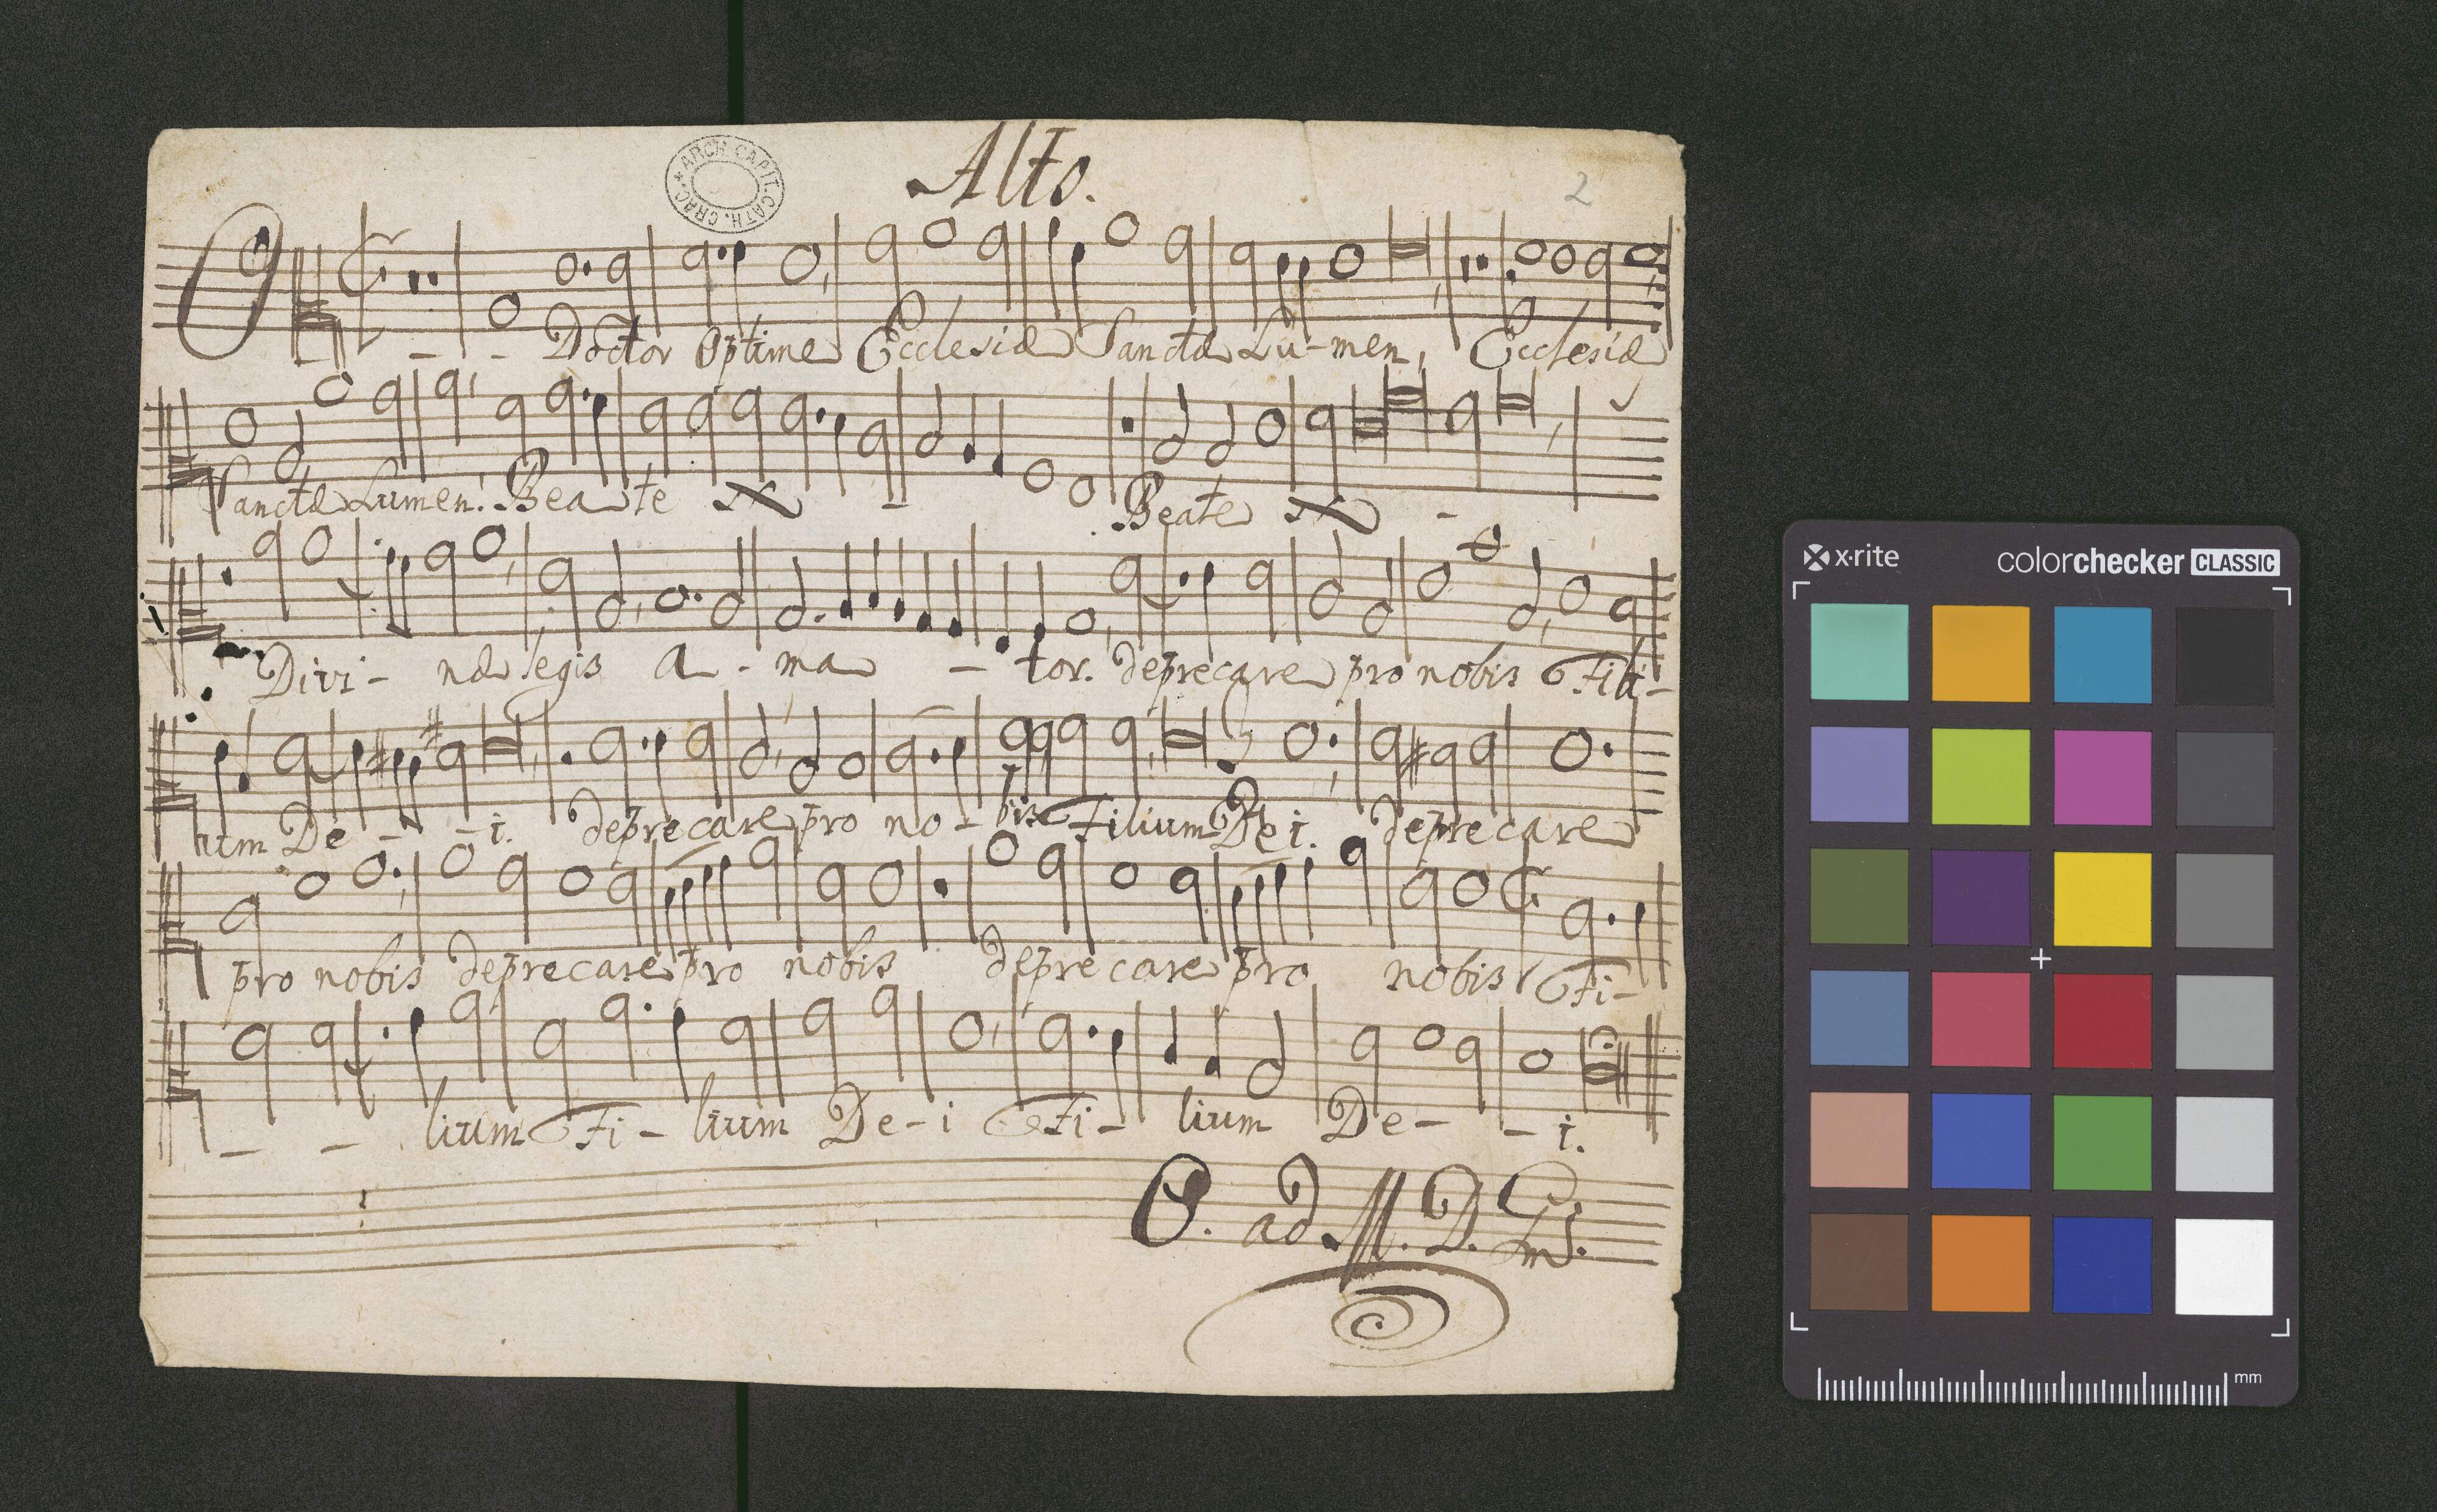 Alto.
ARCH. CAPIT. CATH. CRAC.
2
O - - Doctor Optime Ecclesiæ Sanctæ Lu-men, Ecclesiæ
Sanctæ Lumen. Beate - Beate -
Divi- næ legis a - ma - tor. deprecare pro nobis Fili-
um De - - i. deprecare pro no - bis Filium Dei. deprecare
pro nobis deprecare pro nobis deprecare pro nobis Fi-
- - lium Fi - lium De - i Fi - lium De - - i.
O. ad M. D.
x·rite
colorchecker CLASSIC
mm